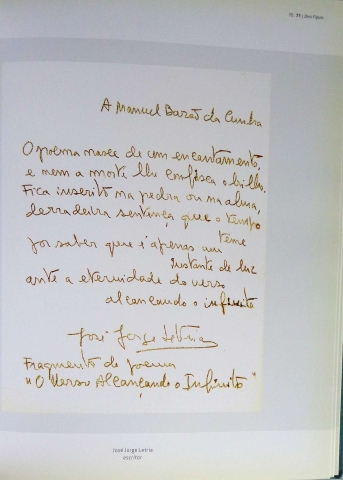 A Manuel Barão da Cunha
O poema nasce de um encantamento,
e nem a morte lhe confisca o brilho.
Fica inscrito na pedra ou na alma,
derradeira sentença que o tempo
teme
por saber que é apenas um
instante de luz
ante a eternidade do verso
alcançando o infinito
José Jorge Letria
Fragmento do poema
"O Verso Alcançando o Infinito"
José Jorge Letria
escritor